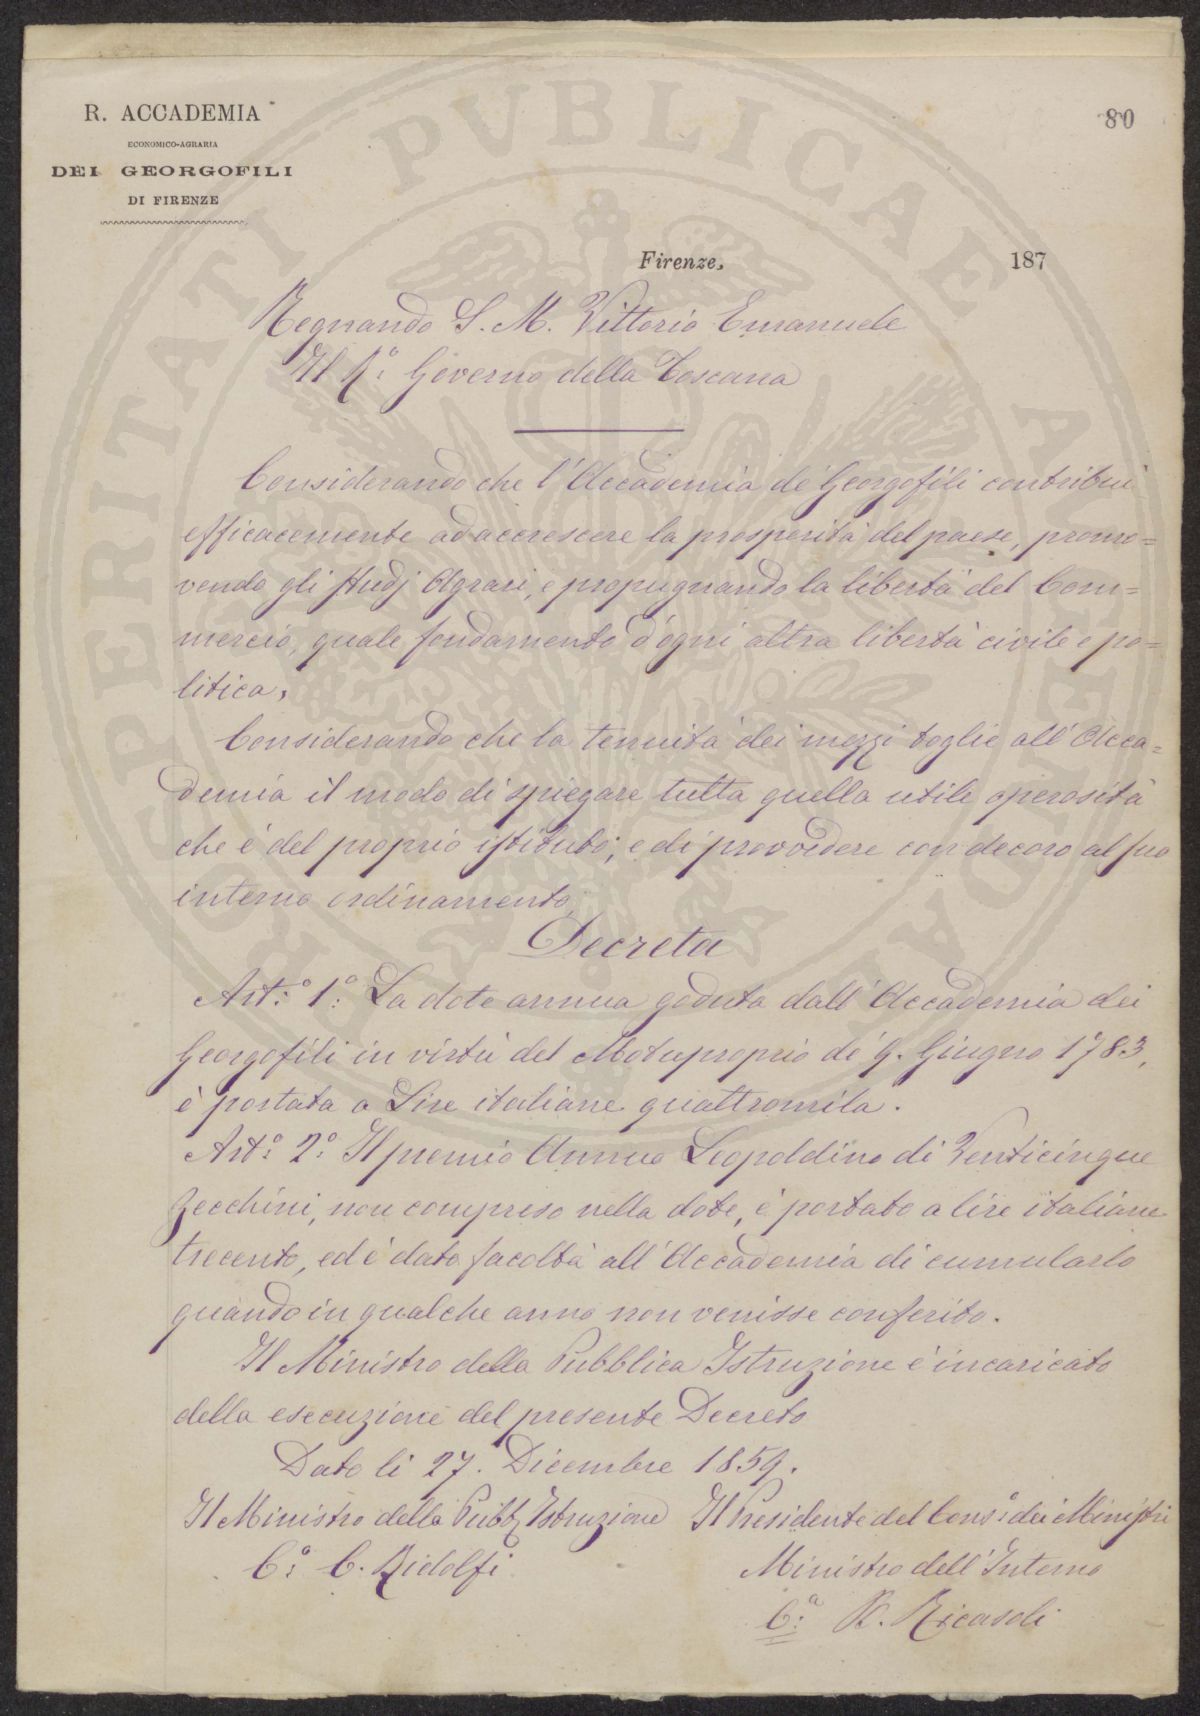 R. ACCADEMIA
ECONOMICO-AGRARIA
DEI GEORGOFILI
DI FIRENZE
80
Firenze, 187
Regnando S. M. Vittorio Emanuele
Il R.º Governo della Toscana
Considerando che l'Accademia de' Georgofili contribuì
efficacemente ad accrescere la prosperità del paese, promo=
vendo gli studj Agrari, e propugnando la libertà del Com=
mercio, quale fondamento d'ogni altra libertà civile e po=
litica,
Considerando che la tenuità dei mezzi toglie all'Acca=
demia il modo di spiegare tutta quella utile operosità
che è del proprio istituto; e di provvedere con decoro al suo
interno ordinamento,
Decreta
Art:º 1º: La dote annua goduta dall'Accademia dei
Georgofili in virtù del Motuproprio de' 9. Giugno 1783,
è portata a Lire italiane quattromila.
Artº: 2º: Il premio Annuo Leopoldino di Venticinque
Zecchini, non compreso nella dote, è portato a lire italiane
trecento, ed è data facoltà all'Accademia di cumularlo
quando in qualche anno non venisse conferito.
Il Ministro della Pubblica Istruzione è incaricato
della esecuzione del presente Decreto
Dato li 27. Dicembre 1859.
Il Ministro della Pubb. Istruzione Il Presidente del Cons:º dei Ministri
C:º C. Ridolfi Ministro dell'Interno
C:ª B. Ricasoli
PROSPERITATI PVBLICAE AVGENDAE